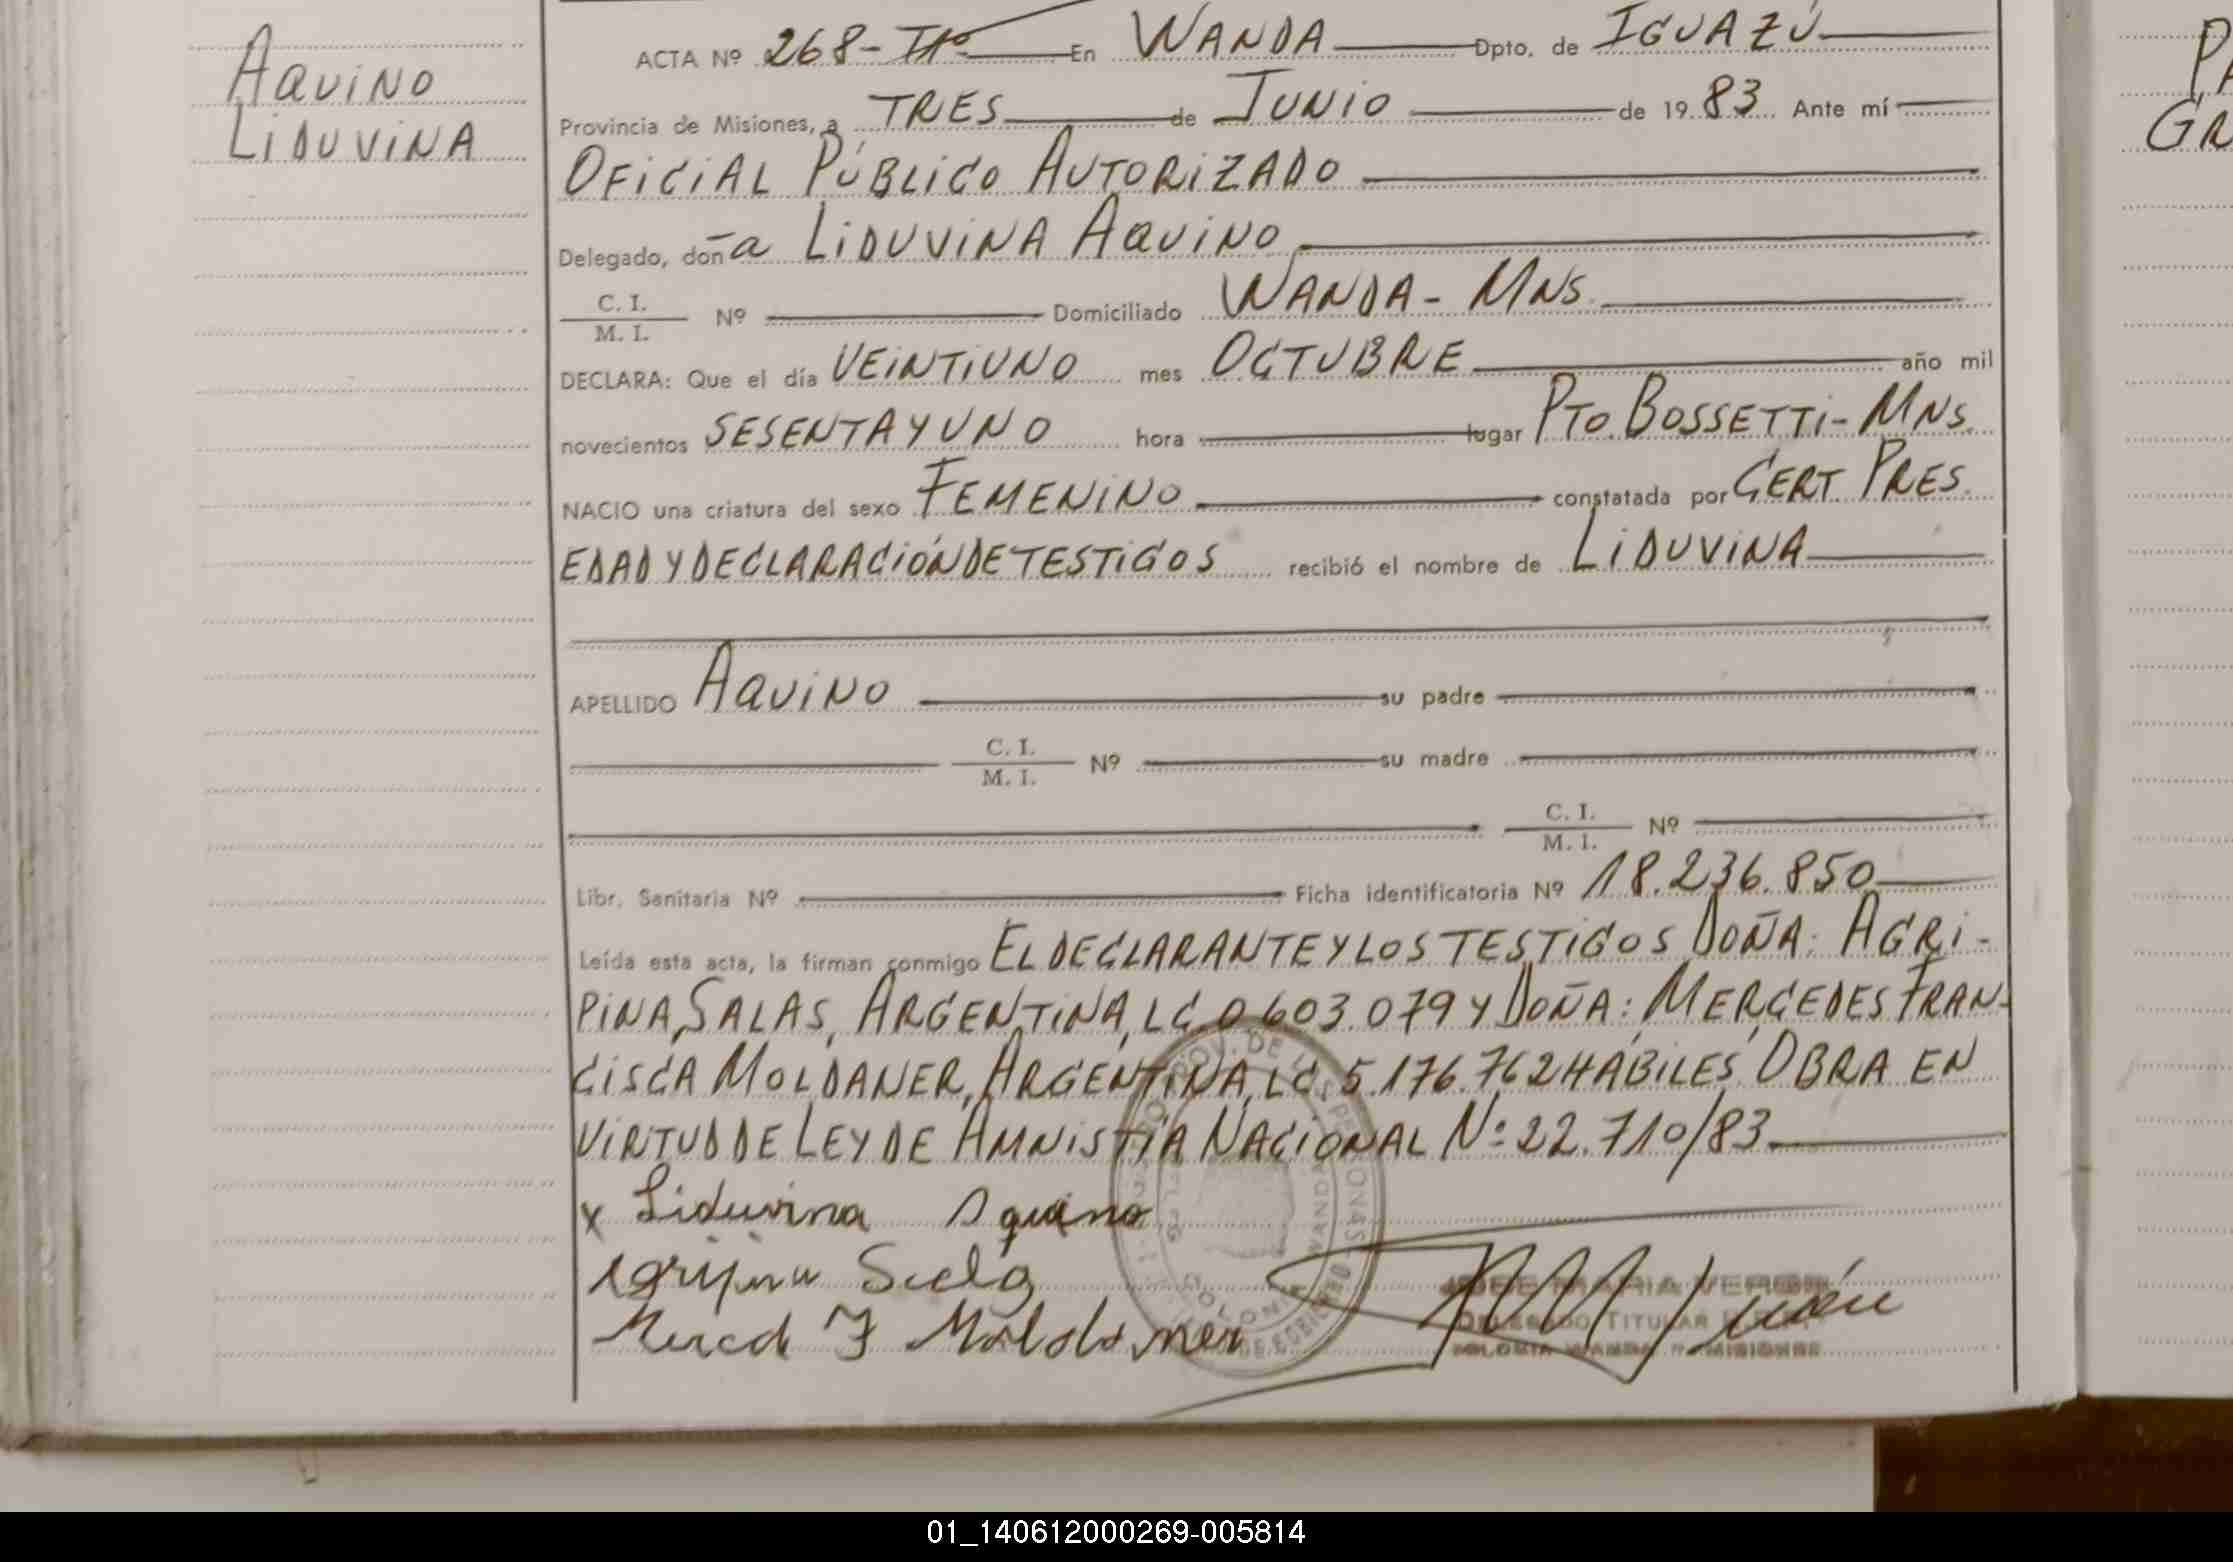 Aquino
Liduvina
ACTA Nº 268-Tº En WANDA Dpto. de IGUAZÚ
Provincia de Misiones, a TRES de JUNIO de 1983 Ante mí
OFICIAL PÚBLICO AUTORIZADO
Delegado, doña LIDUVINA AQUINO
C. I.
M. I. Nº Domiciliado WANDA - MNS.
DECLARA: Que el día VEINTIUNO mes OCTUBRE año mil
novecientos SESENTA Y UNO hora lugar PTO. BOSSETTI - MNS.
NACIO una criatura del sexo FEMENINO constatada por CERT PRES.
EDAD Y DECLARACIÓN DE TESTIGOS recibió el nombre de LIDUVINA
APELLIDO AQUINO su padre
C. I.
M. I. Nº su madre
C. I.
M. I. Nº
Libr. Sanitaria Nº Ficha identificatoria Nº 18.236.850
Leída esta acta, la firman conmigo EL DECLARANTE Y LOS TESTIGOS DOÑA: AGRI-
PINA, SALAS, ARGENTINA, LC. 0.603.079 Y DOÑA: MERCEDES FRAN-
CISCA MOLDANER, ARGENTINA, LC. 5.176.762 HÁBILES. OBRA EN
VIRTUD DE LEY DE AMNISTÍA NACIONAL Nº 22.710/83
x Liduvina Aquino
Merced F Moldaner
JOSE MARIA
DELEGADO TITULAR
COLONIA WANDA - MISIONES
PA
GR
01_140612000269-005814